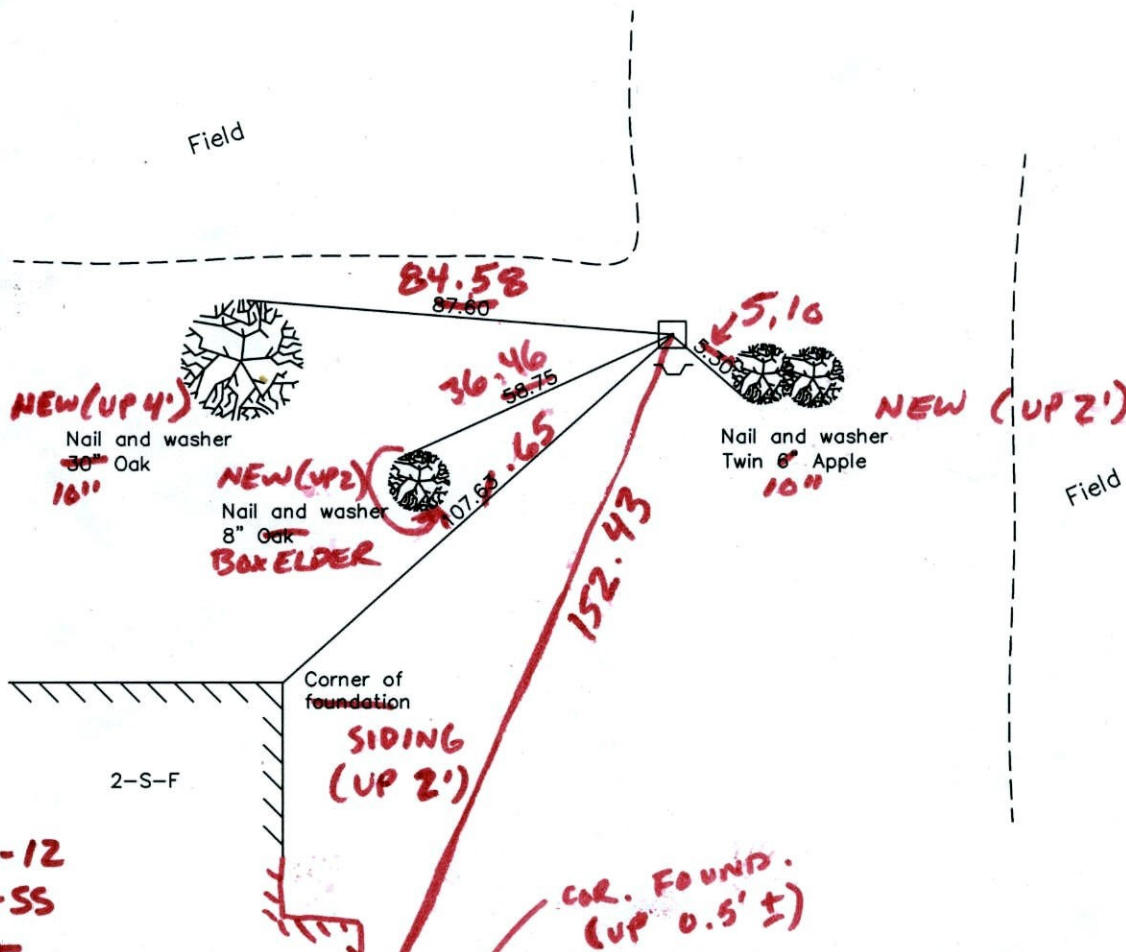 Field
84.58
87.60
5.10
5.30
36.46
58.75
NEW (UP 4')
Nail and washer
30" Oak
10"
NEW (UP 2)
Nail and washer
8" Oak
BOX ELDER
107.63
.65
152.43
NEW (UP 2')
Nail and washer
Twin 6" Apple
10"
Field
Corner of
foundation
SIDING
(UP 2')
2-S-F
-12
-SS
COR. FOUND.
(UP 0.5' ±)